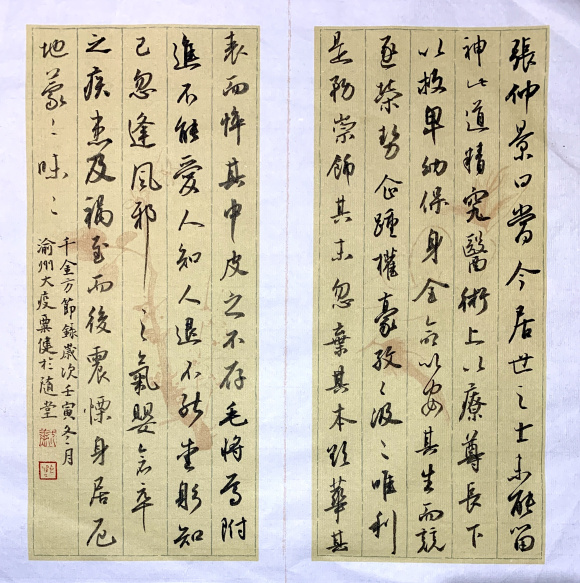 張仲景曰當今居世之士未能留
神此道精究醫術上以療尊長下
以救卑幼保身全命以安其生而競
逐榮勢企踵權豪孜〻汲〻唯利
是務崇飾其末忽棄其本欲華其
表而悴其中皮之不存毛將焉附
進不能愛人知人退不能愛躬知
己忽逢風邪之氣嬰倉卒
之疾患及禍至而後震慄身居厄
地蒙〻昧〻
千金方節錄歲次壬寅冬月
渝州大疫粟健於随堂